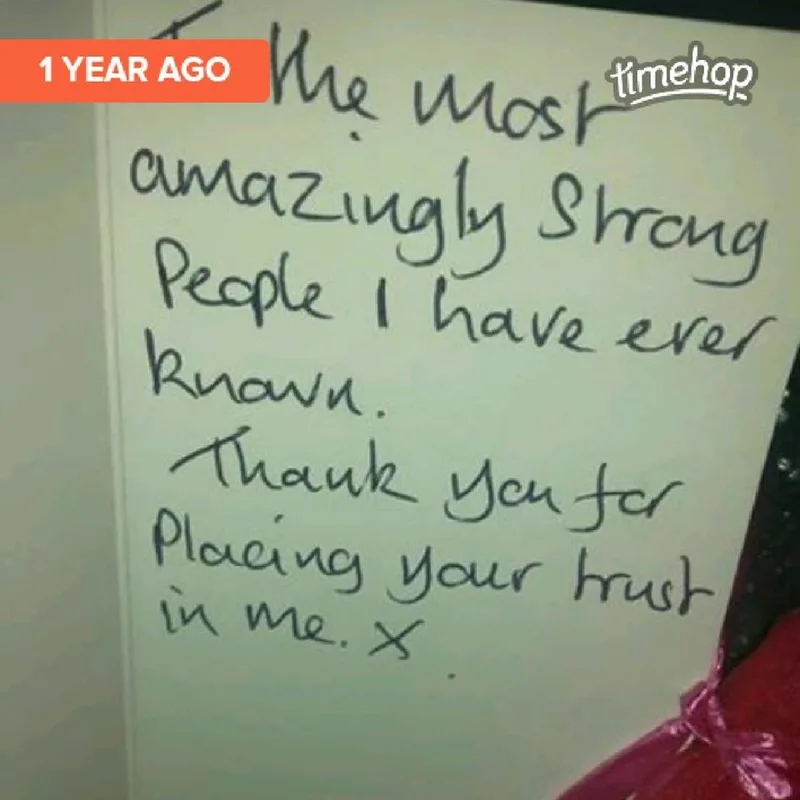 1 YEAR AGO
timehop
To the most
amazingly Strong
People I have ever
known.
Thank you for
Placing your trust
in me. x